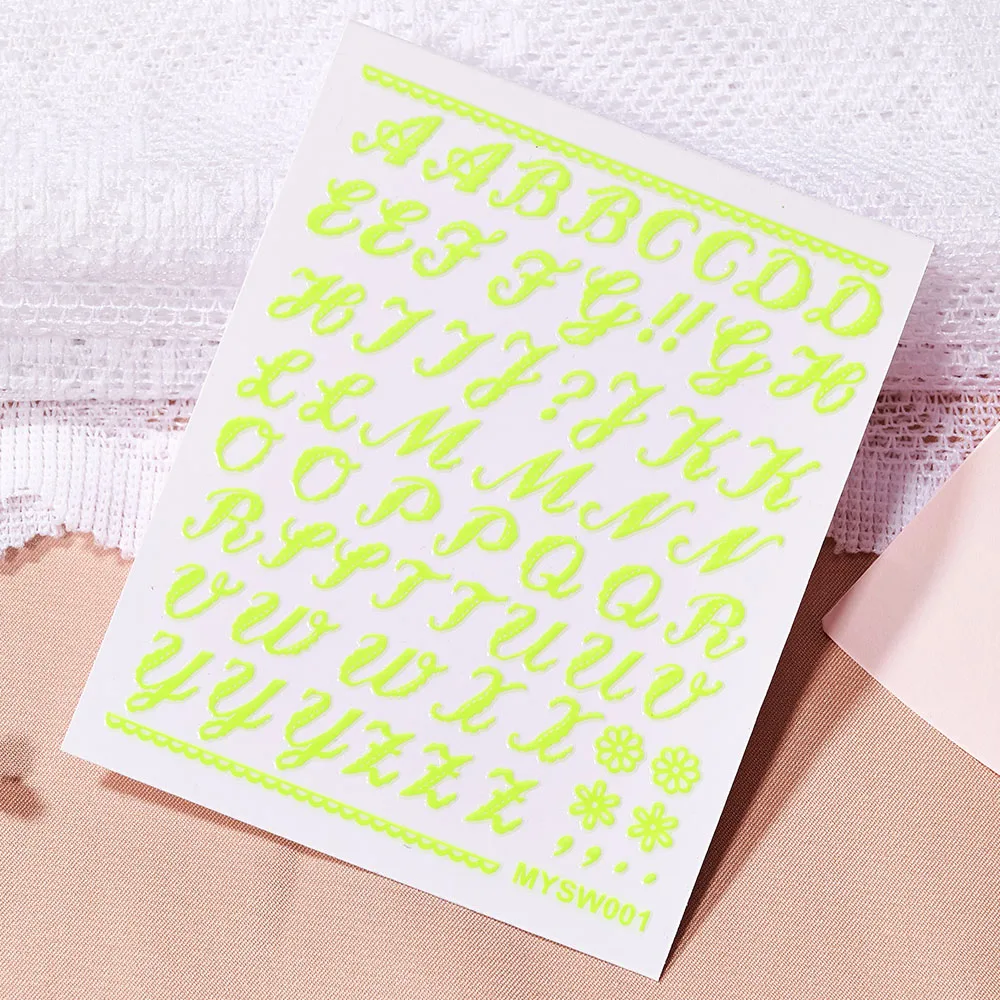 A A B B C C D D
E E F F G !! G H
H I I J ? J K K
L L M M N N
O O P P Q Q R
R S S T T U U V
V W W X X
Y Y Y Z Z Z
, , . .
MYSW001